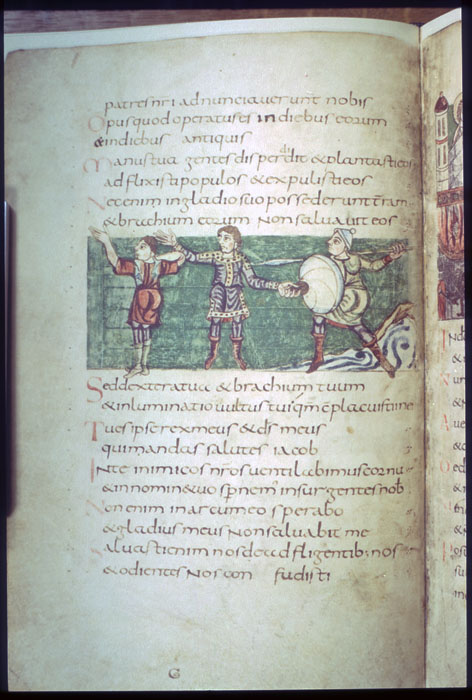 patres nr̄i adnunciaverunt nobis
Opus quod operatus es in diebus eorum
& in diebus antiquis
Manus tua gentes disperdidit & plantasti eos
adflixisti populos & expulisti eos
Nec enim in gladio suo possederunt terram
& brachium eorum non salvavit eos
Sed dextera tua & brachium tuum
& inluminatio vultus tui qm̄ conplacuisti in e
Tu es ipse rex meus & d̄s meus
qui mandas salutes iacob
In te inimicos nr̄os ventilabimus cornu
& in nomine tuo spernem insurgentes nob
Non enim in arcu meo sperabo
& gladius meus non salvabit me
Salvasti enim nos de adfligentib: nos
& odientes nos confudisti
G